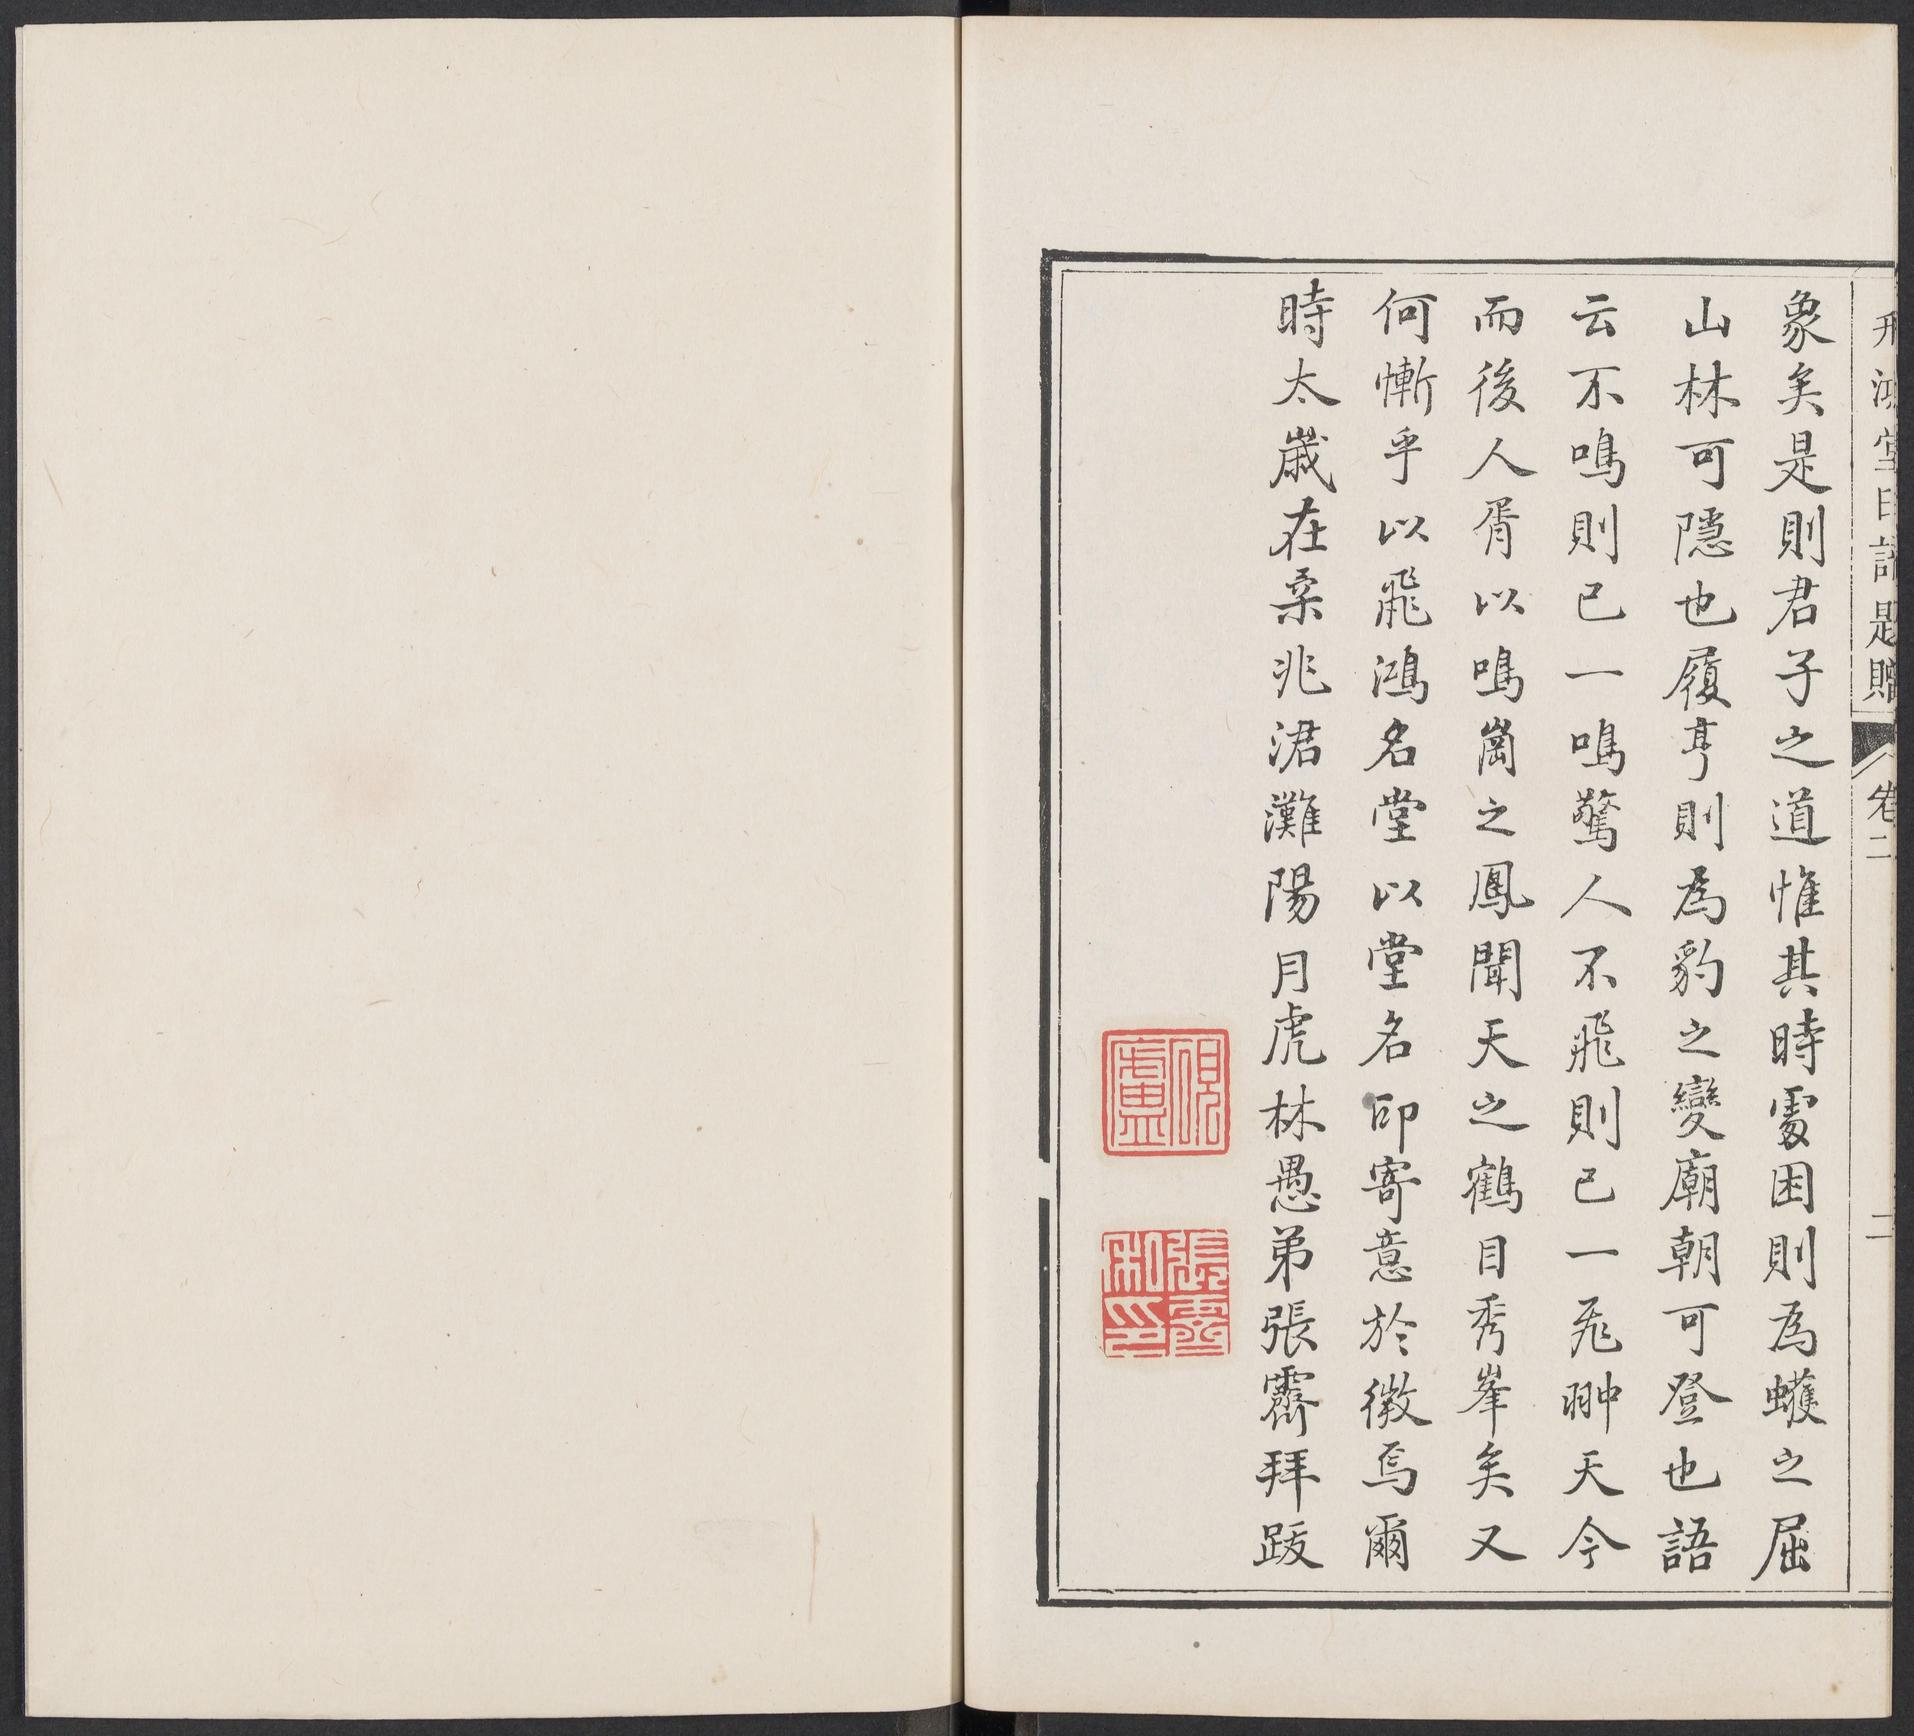 飛鴻堂印譜題贈 卷二 二
象矣是則君子之道惟其時處困則為蠖之屈
山林可隱也履亨則為豹之變廟朝可登也語
云不鳴則已一鳴驚人不飛則已一飛翀天今
而後人胥以鳴崗之鳳聞天之鶴目秀峯矣又
何慚乎以飛鴻名堂以堂名印寄意於徵焉爾
時太嵗在柔兆涒灘陽月虎林愚弟張霽拜跋
張霽私印